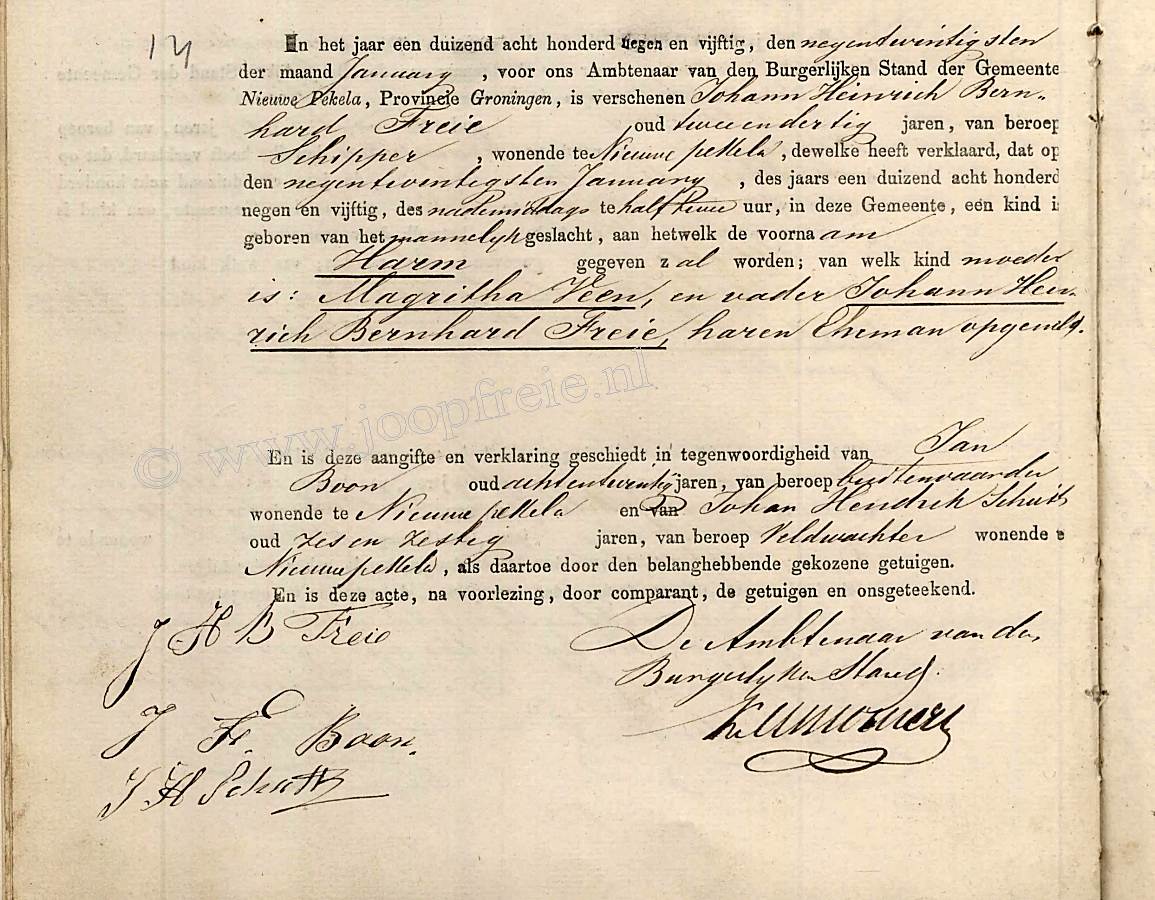 13
In het jaar een duizend acht honderd negen en vijftig, den negentwintigsten
der maand January, voor ons Ambtenaar van den Burgerlijken Stand der Gemeente
Nieuwe Pekela, Provincie Groningen, is verschenen Johann Heinrich Bern-
hard Freie oud twee en dertig jaren, van beroep
Schipper, wonende te Nieuwe pekela, dewelke heeft verklaard, dat op
den negentwintigsten January, des jaars een duizend acht honderd
negen en vijftig, des nademiddags te half twee uur, in deze Gemeente, een kind i
geboren van het mannelyk geslacht, aan hetwelk de voorna am
Harm gegeven z al worden; van welk kind moeder
is: Magritha Veen, en vader Johann Hein-
rich Bernhard Freie, haren Eheman opgemeld.
© www.joopfreie.nl
En is deze aangifte en verklaring geschiedt in tegenwoordigheid van Jan
Boon oud achtentwintig jaren, van beroep buitenvaarder
wonende te Nieuwe pekela en van Johan Hendrik Schutt
oud zes en zestig jaren, van beroep Veldwachter wonende
Nieuwe pekela, als daartoe door den belanghebbende gekozene getuigen.
En is deze acte, na voorlezing, door comparant, de getuigen en ons geteekend.
J H B Freie
De Ambtenaar van den
Burgerlyken Stand.
J Fr. Boon.
J H Schutt